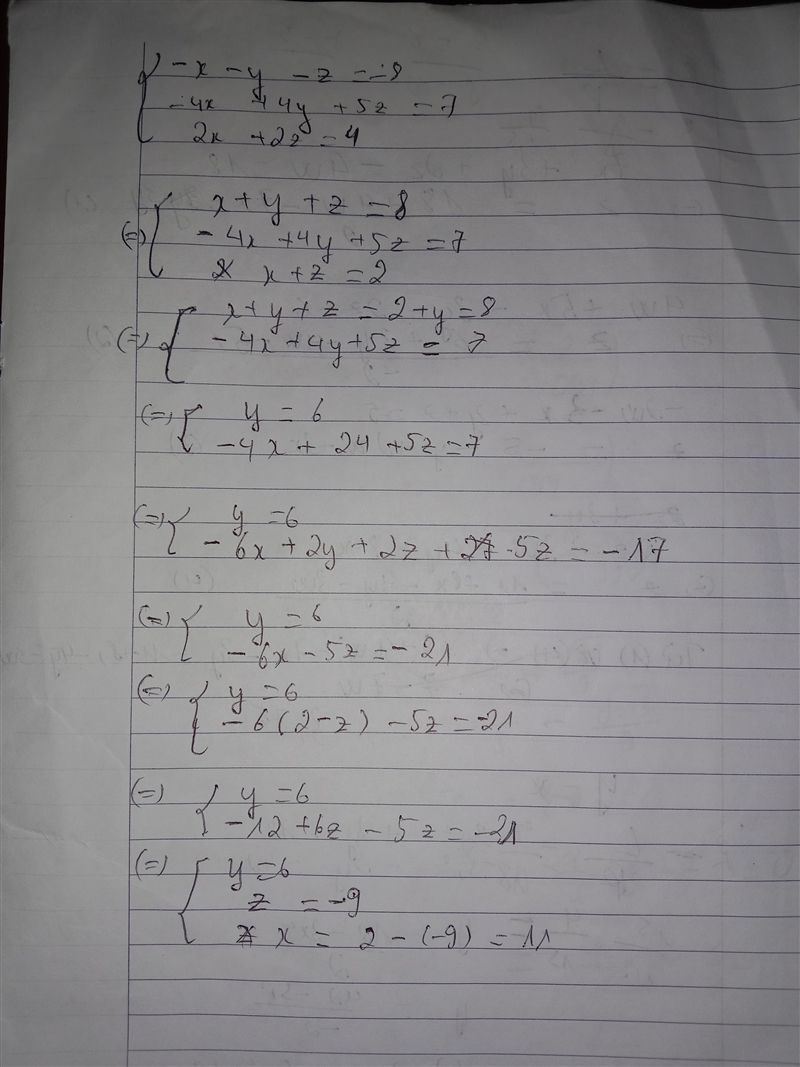 -x - y - z = -8
-4x + 4y + 5z = 7
2x + 2z = 4
x + y + z = 8
(=) -4x + 4y + 5z = 7
x + z = 2
x + y + z = 2 + y = 8
(=) -4x + 4y + 5z = 7
(=) y = 6
-4x + 24 + 5z = 7
(=) y = 6
-6x + 2y + 2z + 5z = -17
(=) y = 6
-6x - 5z = -21
(=) y = 6
-6(2 - z) - 5z = -21
(=) y = 6
-12 + 6z - 5z = -21
(=) y = 6
z = -9
x = 2 - (-9) = 11